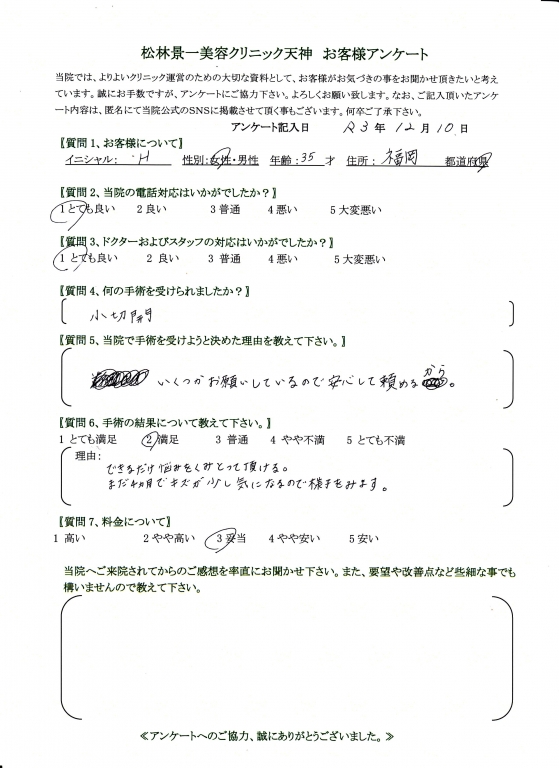 松林景一美容クリニック天神　お客様アンケート
当院では、よりよいクリニック運営のための大切な資料として、お客様がお気づきの事をお聞かせ頂きたいと考え
ています。誠にお手数ですが、アンケートにご協力下さい。よろしくお願い致します。なお、ご記入頂いたアンケ
ート内容は、匿名にて当院公式のSNSに掲載させて頂く事もございます。何卒ご了承下さい。
アンケート記入日　R3年12月10日
【質問1、お客様について】
イニシャル： H　性別:女性・男性　年齢:35才　住所：福岡　都道府県
【質問2、当院の電話対応はいかがでしたか？】
1とても良い　2良い　3普通　4悪い　5大変悪い
【質問3、ドクターおよびスタッフの対応はいかがでしたか？】
1とても良い　2 良い　3 普通　4悪い　5大変悪い
【質問4、何の手術を受けられましたか？】
小切開
【質問5、当院で手術を受けようと決めた理由を教えて下さい。】
いくつかお願いしているので安心して頼めるから。
【質問6、手術の結果について教えて下さい。】
1 とても満足　2 満足　3 普通　4 やや不満　5 とても不満
理由：
できるだけ悩みをくみとって頂ける。
まだ4ヵ月でキズが少し気になるので様子をみます。
【質問7、料金について】
1 高い　2やや高い　3妥当　4やや安い　5安い
当院へご来院されてからのご感想を率直にお聞かせ下さい。また、要望や改善点など些細な事でも
構いませんので教えて下さい。
≪アンケートへのご協力、誠にありがとうございました。≫